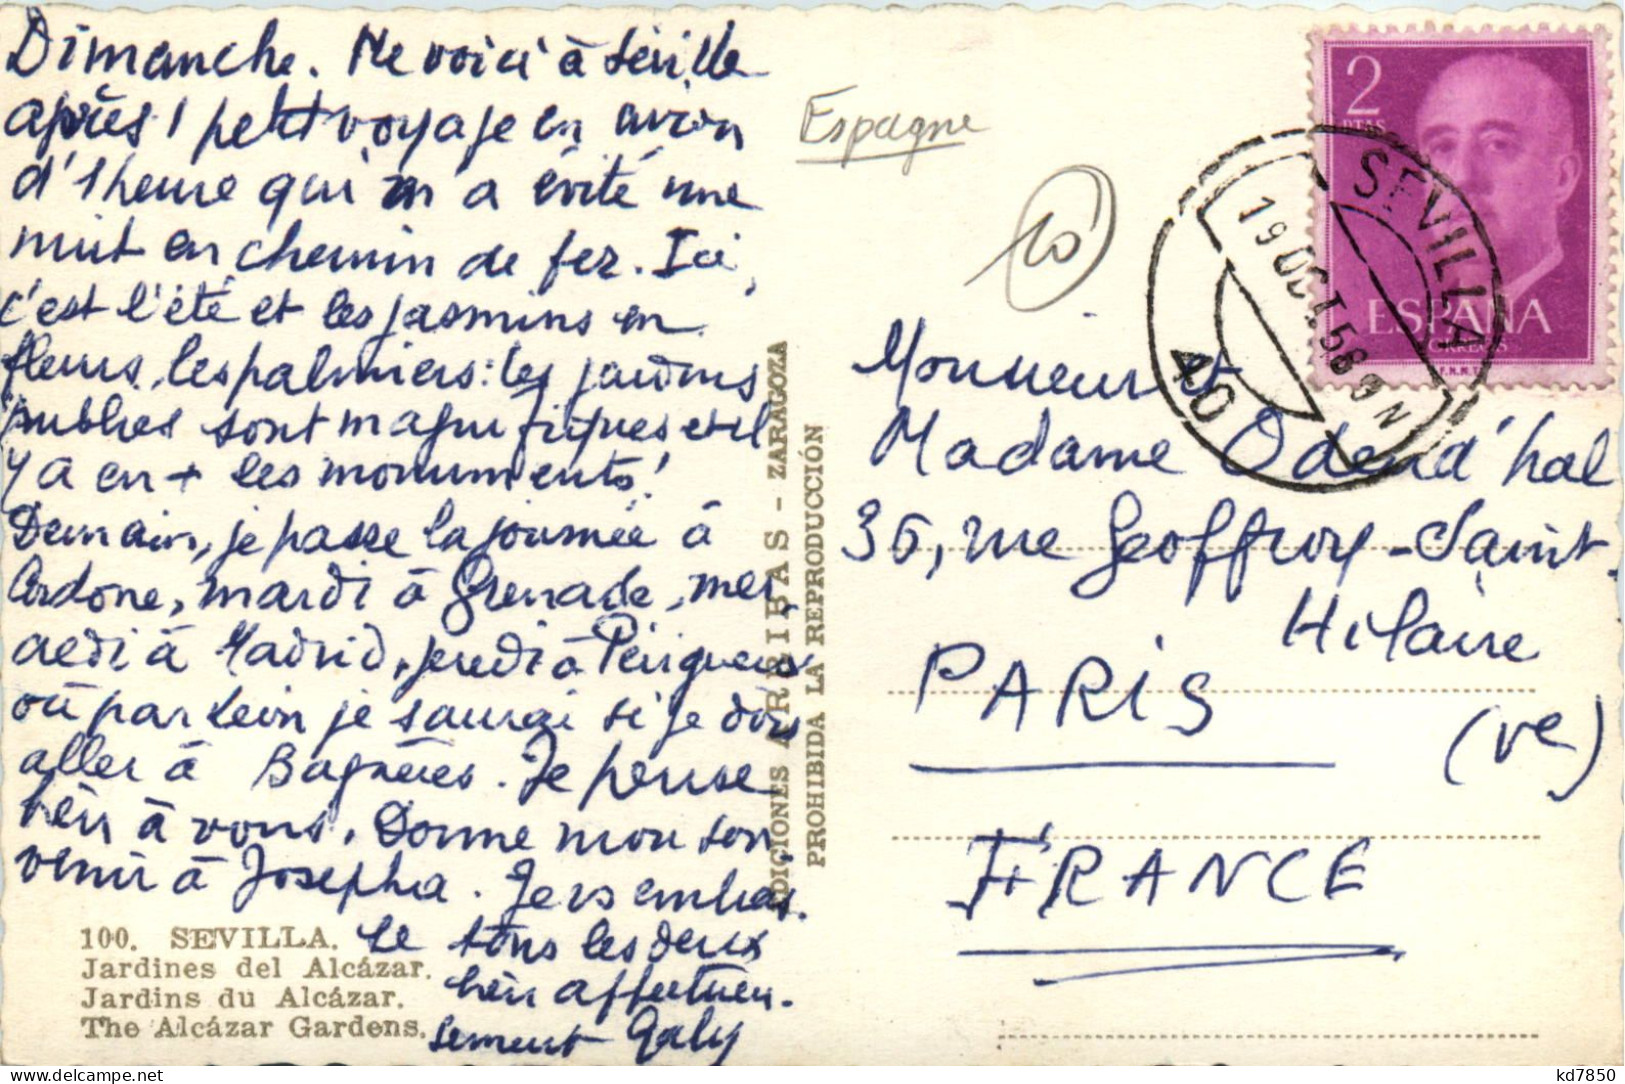 Dimanche. Me voici à Séville
après 1 petit voyage en avion
d'1 heure qui m'a évité une
nuit en chemin de fer. Ici,
c'est l'été et les jasmins en
fleurs, les palmiers : les jardins
publics sont magnifiques et il
y a en + les monuments !
Demain, je passe la journée à
Cordoue, mardi à Grenade, mer-
credi à Madrid, jeudi à Périgueux
où par Léon je saurai si je dois
aller à Bagnères. Je pense
bien à vous. Donne mon sou-
venir à Josepha. Je vs embras-
se tous les deux
bien affectueu-
sement Galy
100. SEVILLA.
Jardines del Alcázar.
Jardins du Alcázar.
The Alcázar Gardens.
EDICIONES ARRIBAS - ZARAGOZA
PROHIBIDA LA REPRODUCCIÓN
Espagne
10
2
PTAS
ESPAÑA
CORREOS
F.N.M.T.
SEVILLA
19 OCT. 58
40
Monsieur et
Madame Odend'hal
36, rue Geoffroy-Saint-
Hilaire
PARIS
(Ve)
FRANCE
kd7850